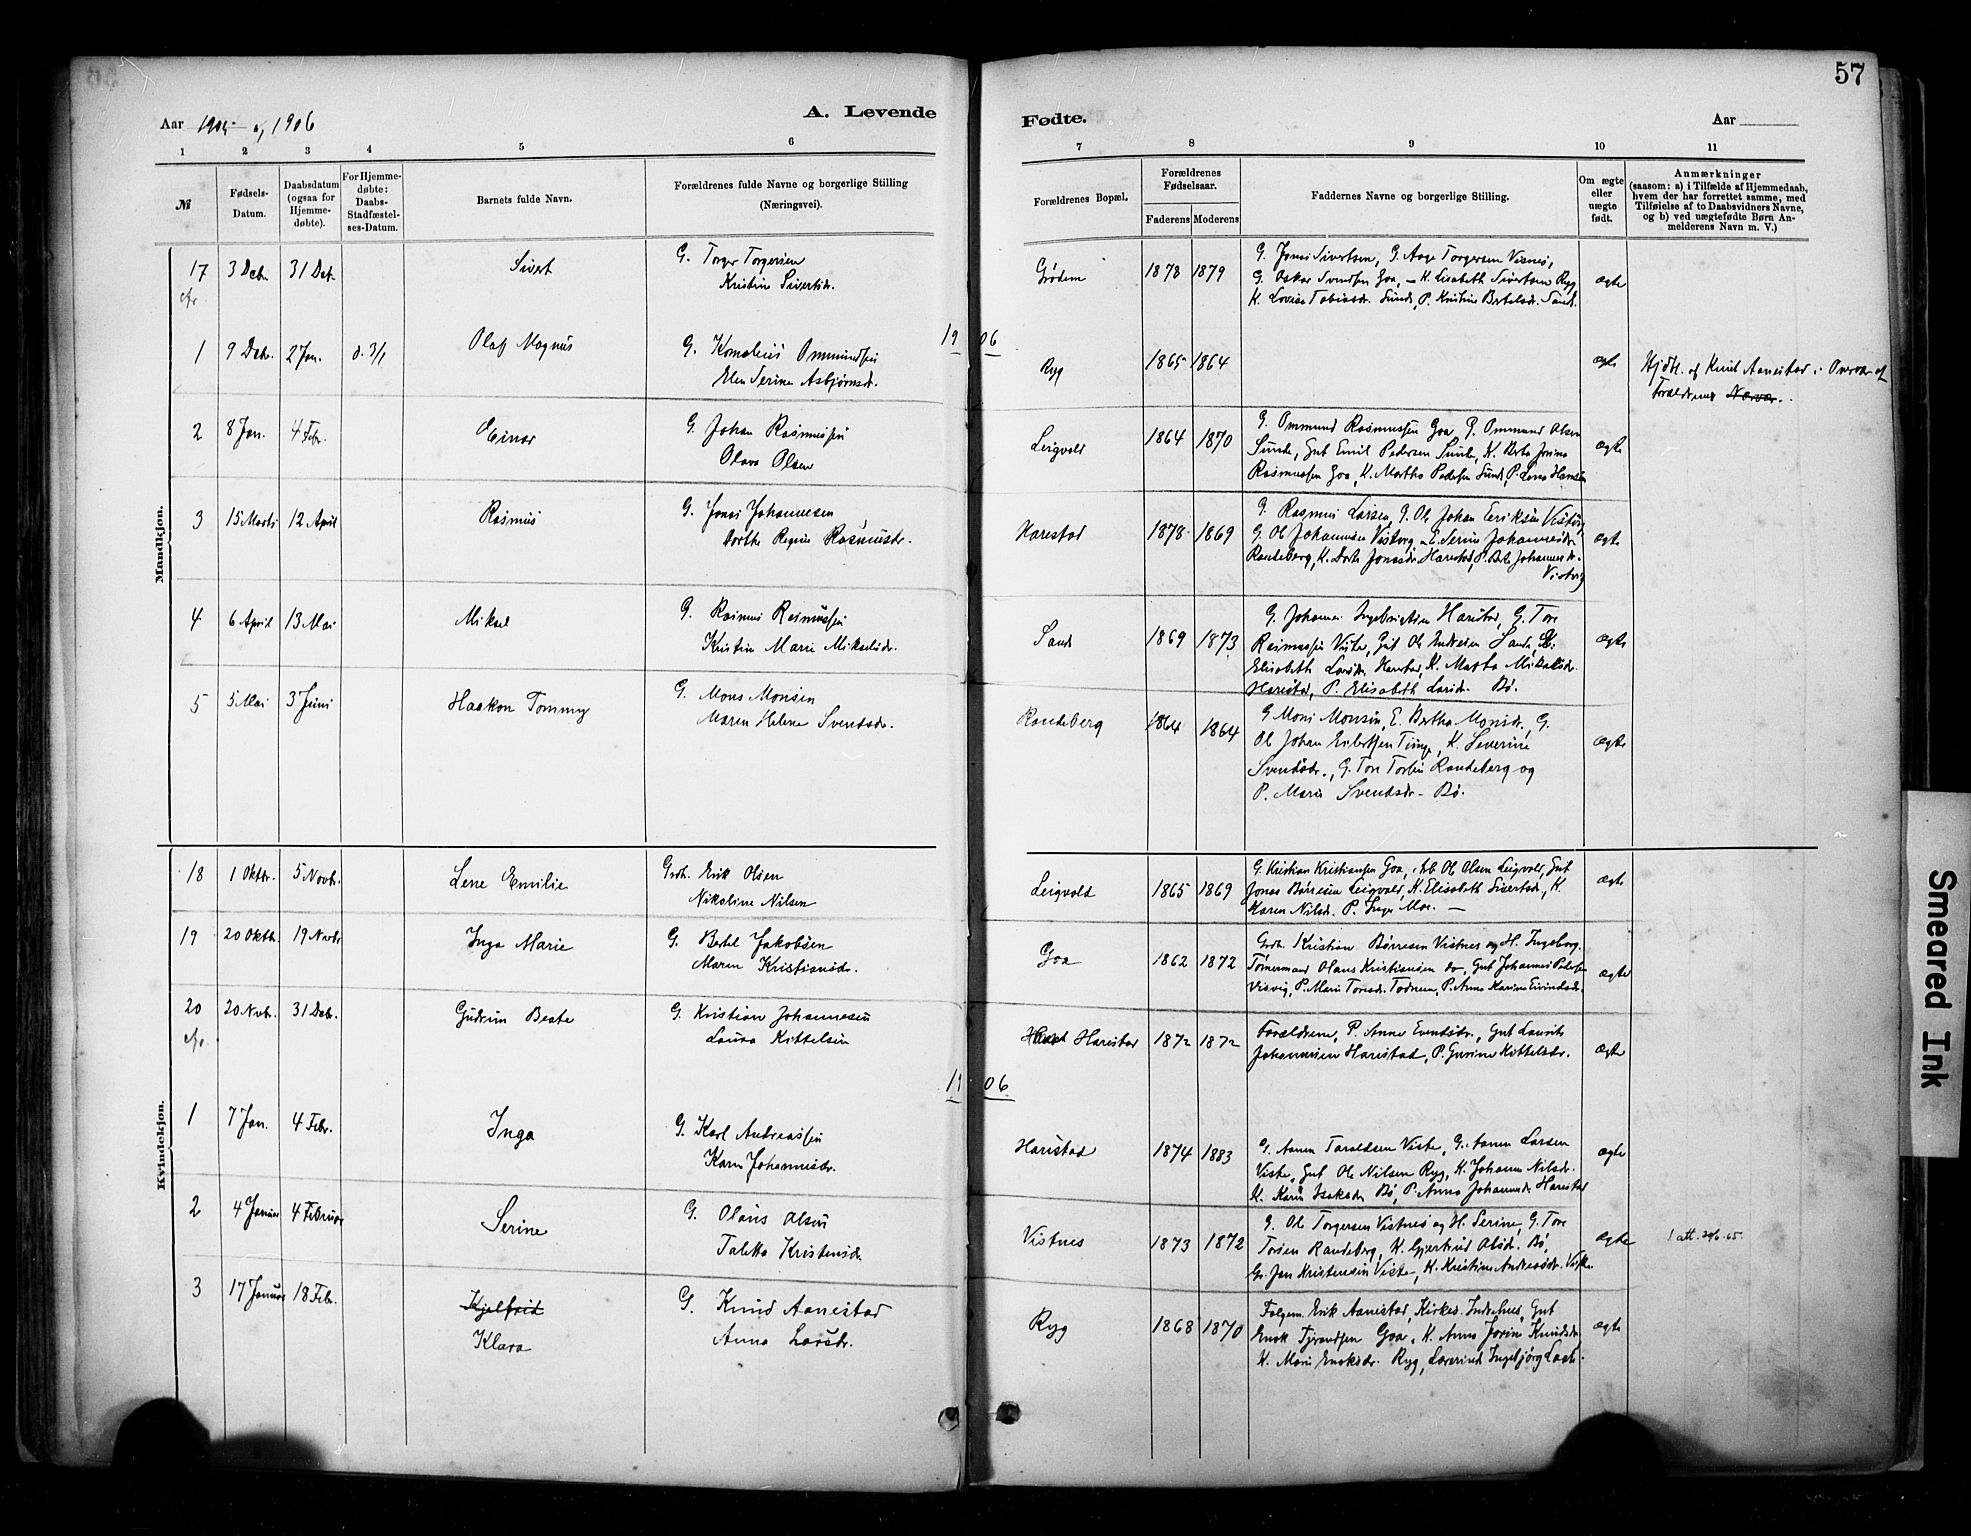 57
Aar 1905 og 1906
A. Levende
Fødte.
Aar
1 2 3 4 5 6 7 8 9 10 11
№
Fødsels-
Datum.
Daabsdatum
(ogsaa for
Hjemme-
døbte).
For Hjemme-
døbte:
Daabs-
Stadfæstel-
ses-Datum.
Barnets fulde Navn.
Forældrenes fulde Navne og borgerlige Stilling
(Næringsvei).
Forældrenes Bopæl.
Forældrenes
Fødselsaar.
Faderens Moderens
Faddernes Navne og borgerlige Stilling.
Om ægte
eller
uægte
født.
Anmærkninger
(saasom: a) i Tilfælde af Hjemmedaab,
hvem der har forrettet samme, med
Tilføielse af to Daabsvidners Navne,
og b) ved uægtefødte Børn An-
melderens Navn m. V.)
Mandkjøn.
17 3 Decbr. 31 Dcbr. Sivert
G. Torger Torgersen
Kristine Sivertsdr.
Grødem 1878 1879
G. Jonas Sivertsen, G. Aage Torgersen Visnes,
G. Oskar Svendsen Goa, K. Lisabeth Sivertsen Ryg,
K. Lovise Tobiasdr. Sunde, P. Kristine Bertelsdr. Sande.
ægte
1906
1 9 Decbr. 2 Jan. d. 3/1 Olaf Magnus
G. Kornelius Ommundsen
Elen Serine Asbjørnsdr.
Ryg 1865 1864 ægte
Hjdbt. af Knud Aanestad i Overvær af
Forældrene
2 8 Jan. 4 Febr. Einar
G. Johan Rasmussen
Olava Olsen
Leigvold 1864 1870
G. Ommund Rasmussen Goa, G. Ommund Olsen
Sunde, Gut Emil Pedersen Sunde, K. Berta Jorina
Rasmussen Goa, K. Martha Pedersen Sunde, P. Lena Hansen
ægte
3 15 Marts 12 April Rasmus
G. Jonas Johannesen
Dorthe Regine Rasmusdr.
Harestad 1878 1869
G. Rasmus Larsen, G. Ole Johan Eeriksen Vistvig,
G. Ole Johannesen Vistvig, E. Serine Johannesdr.
Randeberg, K. Dorte Jonasdr. Harestad, P. Berta Johannesdr.
Vistvig
ægte
4 6 April 13 Mai Mikael
G. Rasmus Rasmussen
Kristine Marie Mikaelsdr.
Sande 1869 1873
G. Johannes Ingebrigtsen Harestad, G. Tore
Rasmussen Viste, Gut Ole Andresen Sande, K.
Elisabeth Larsdr. Harestad, K. Marta Mikalsdr.
Harestad, P. Elisabeth Larsdr. Bø.
ægte
5 5 Mai 3 Juni Haakon Tommy
G. Mons Monsen
Maren Helene Svendsdr.
Randeberg 1864 1864
G. Mons Monsen, E. Bertha Monsdr., G.
Ole Johan Tunge, K. Severine
Svendsdr., G. Tore Randeberg og
P. Marie Svendsdr. Bø.
ægte
Kvindekjøn.
18 1 Oktbr. 5 Novbr. Lene Emilie
Grdb. Erik Olsen
Nikoline Nilsen
Leigvold 1865 1869
G. Kristian Kristiansen Goa, Arb. Ole Olsen Leigvold, Gut
Jonas Børresen Leigvold, K. Elisabeth Sivertsdr., K.
Karen Nilsdr. P. Inga Moe.
ægte
19 20 Oktb. 19 Novbr. Inga Marie
G. Bertel Jakobsen
Maren Kristiansdr.
Goa 1862 1872
Grdb. Kristian Børresen Vistnes og H. Ingeborg.
Tømmermand Olaus Kristiansen do, Gut Johannes Pedersen
Visvig, P. Marie Toresdr. Todnem, P. Anna Karine Eivindsdr.
ægte
20 20 Novb. 31 Decbr. Gudrun Beate
G. Kristian Johannesen
Laura Kittelsen
Harestad 1872 1872
Forældrene, P. Anne Evendsdr., Gut Laurits
Johannesen Harestad, P. Gurine Kittelsdr.
ægte
1906
1 7 Jan. 4 Febr. Inga
G. Karl Andreassen
Karen Johannesdr.
Harestad 1874 1883
G. Aanen Taraldsen Viste, G. Aanen Larsen
Viste, Gut Ole Nilsen Ryg, K. Johanne Nilsdr.
K. Karen Isaksdr. Bø, P. Anna Johannesdr. Harestad
ægte
2 4 Januar 4 Februar Serine
G. Olaus Olsen
Taletta Kristensdr.
Vistnes 1873 1872
G. Ole Torgersen Vistnes og H. Serine, G. Tore
Torsen Randeberg, K. Gjertrud Olsdr. Bø,
G. Jan Kristensen Viste, K. Kristine Andreasdr. Viste
ægte
1 att. 20/6-65.
3 17 Januar 18 Febr. Kjelfrid
Klara
G. Knud Aanestad
Anna Larsdr.
Ryg 1868 1870
Folgem. Erik Aanestad, Kirkes. Indrehus, Gut
Enok Tjerandsen Goa, K. Anna Jorine Knudsdr.
K. Marie Enoksdr. Ryg, Lærerinde Ingebjørg
ægte
Smeared Ink